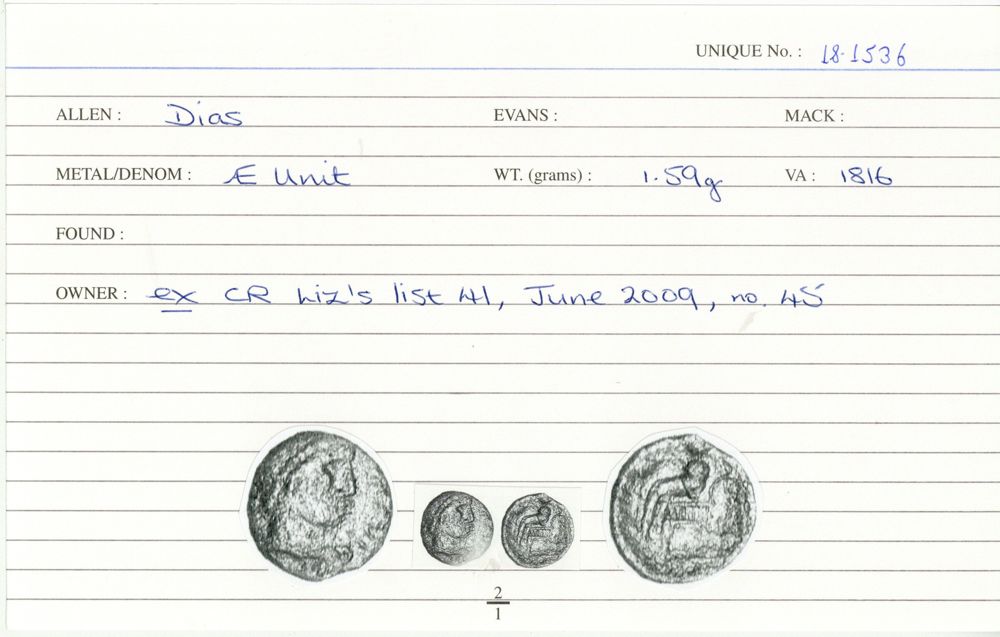 UNIQUE No. : 18.1536
ALLEN : Dias EVANS : MACK :
METAL/DENOM : Æ Unit WT. (grams) : 1.59g VA : 1816
FOUND :
OWNER : ex CR Liz's list 41, June 2009, no. 45
2
1